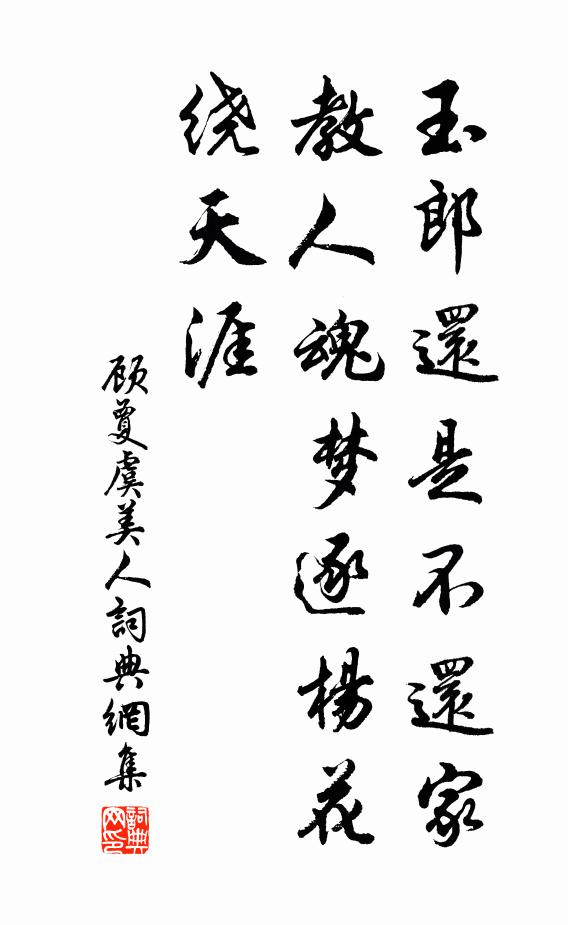 玉郎還是不還家
教人魂梦逐楊花
绕天涯
顾夐虞美人詞典網集
詞典
网印